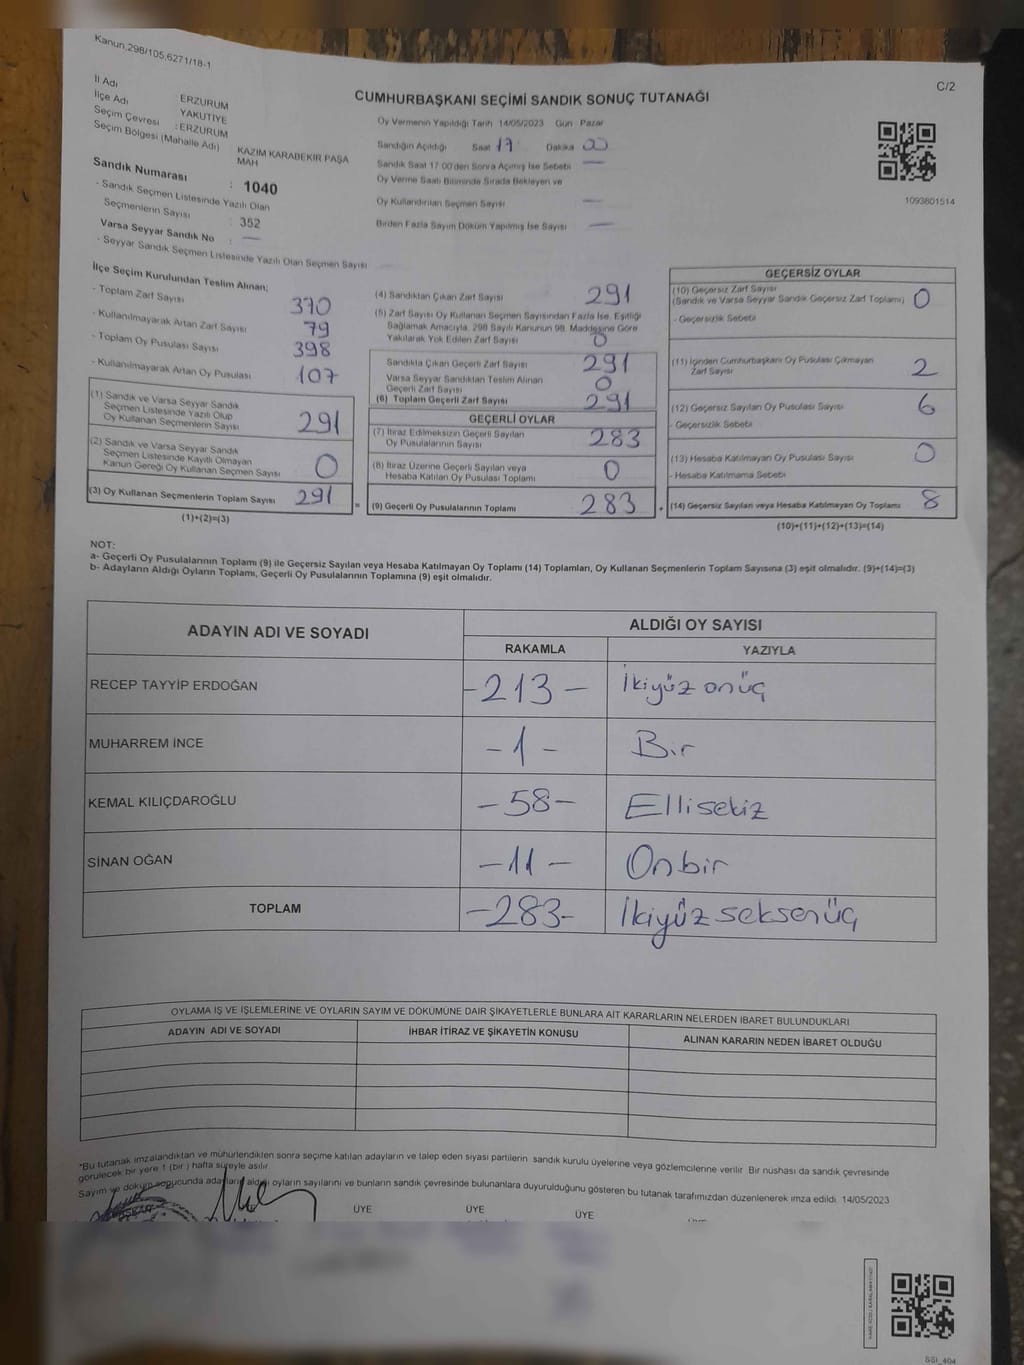 Kanun.298/105,6271/18-1
C/2
CUMHURBAŞKANI SEÇİMİ SANDIK SONUÇ TUTANAĞI
İl Adı : ERZURUM
İlçe Adı YAKUTİYE
Seçim Çevresi : ERZURUM
Seçim Bölgesi (Mahalle Adı) KAZIM KARABEKİR PAŞA
MAH
Sandık Numarası : 1040
- Sandık Seçmen Listesinde Yazılı Olan
Seçmenlerin Sayısı : 352
Varsa Seyyar Sandık No : —
- Seyyar Sandık Seçmen Listesinde Yazılı Olan Seçmen Sayısı
Oy Vermenin Yapıldığı Tarih 14/05/2023 Gün Pazar
Sandığın Açıldığı Saat 17 Dakika 00
Sandık Saat 17:00'den Sonra Açılmış İse Sebebi —
Oy Verme Saati Bitiminde Sırada Bekleyen ve
Oy Kullandırılan Seçmen Sayısı —
Birden Fazla Sayım Döküm Yapılmış İse Sayısı —
1093801514
İlçe Seçim Kurulundan Teslim Alınan;
- Toplam Zarf Sayısı 370
- Kullanılmayarak Artan Zarf Sayısı 79
- Toplam Oy Pusulası Sayısı 398
- Kullanılmayarak Artan Oy Pusulası 107
(1) Sandık ve Varsa Seyyar Sandık
Seçmen Listesinde Yazılı Olup
Oy Kullanan Seçmenlerin Sayısı 291
(2) Sandık ve Varsa Seyyar Sandık
Seçmen Listesinde Kayıtlı Olmayan
Kanun Gereği Oy Kullanan Seçmen Sayısı 0
(3) Oy Kullanan Seçmenlerin Toplam Sayısı 291
(1)+(2)=(3)
(4) Sandıktan Çıkan Zarf Sayısı 291
(5) Zarf Sayısı Oy Kullanan Seçmen Sayısından Fazla İse, Eşitliği
Sağlamak Amacıyla, 298 Sayılı Kanunun 98. Maddesine Göre
Yakılarak Yok Edilen Zarf Sayısı 0
Sandıkta Çıkan Geçerli Zarf Sayısı 291
Varsa Seyyar Sandıktan Teslim Alınan
Geçerli Zarf Sayısı 0
(6) Toplam Geçerli Zarf Sayısı 291
GEÇERLİ OYLAR
(7) İtiraz Edilmeksizin Geçerli Sayılan
Oy Pusulalarının Sayısı 283
(8) İtiraz Üzerine Geçerli Sayılan veya
Hesaba Katılan Oy Pusulası Toplamı 0
= (9) Geçerli Oy Pusulalarının Toplamı 283
GEÇERSİZ OYLAR
(10) Geçersiz Zarf Sayısı
(Sandık ve Varsa Seyyar Sandık Geçersiz Zarf Toplamı) 0
- Geçersizlik Sebebi
(11) İçinden Cumhurbaşkanı Oy Pusulası Çıkmayan
Zarf Sayısı 2
(12) Geçersiz Sayılan Oy Pusulası Sayısı 6
- Geçersizlik Sebebi
(13) Hesaba Katılmayan Oy Pusulası Sayısı 0
- Hesaba Katılmama Sebebi
+ (14) Geçersiz Sayılan veya Hesaba Katılmayan Oy Toplamı 8
(10)+(11)+(12)+(13)=(14)
NOT:
a- Geçerli Oy Pusulalarının Toplamı (9) ile Geçersiz Sayılan veya Hesaba Katılmayan Oy Toplamı (14) Toplamları, Oy Kullanan Seçmenlerin Toplam Sayısına (3) eşit olmalıdır. (9)+(14)=(3)
b- Adayların Aldığı Oyların Toplamı, Geçerli Oy Pusulalarının Toplamına (9) eşit olmalıdır.
ADAYIN ADI VE SOYADI ALDIĞI OY SAYISI
RAKAMLA YAZIYLA
RECEP TAYYİP ERDOĞAN -213- İkiyüz onüç
MUHARREM İNCE -1- Bir
KEMAL KILIÇDAROĞLU -58- Ellisekiz
SİNAN OĞAN -11- Onbir
TOPLAM -283- İkiyüz seksenüç
OYLAMA İŞ VE İŞLEMLERİNE VE OYLARIN SAYIM VE DÖKÜMÜNE DAİR ŞİKAYETLERLE BUNLARA AİT KARARLARIN NELERDEN İBARET BULUNDUKLARI
ADAYIN ADI VE SOYADI İHBAR İTİRAZ VE ŞİKAYETİN KONUSU ALINAN KARARIN NEDEN İBARET OLDUĞU
*Bu tutanak imzalandıktan ve mühürlendikten sonra seçime katılan adayların ve talep eden siyasi partilerin sandık kurulu üyelerine veya gözlemcilerine verilir. Bir nüshası da sandık çevresinde
görülecek bir yere 1 (bir) hafta süreyle asılır.
Sayım ve döküm sonucunda adayların aldığı oyların sayılarını ve bunların sandık çevresinde bulunanlara duyurulduğunu gösteren bu tutanak tarafımızdan düzenlenerek imza edildi. 14/05/2023
ÜYE ÜYE ÜYE
SSI_404